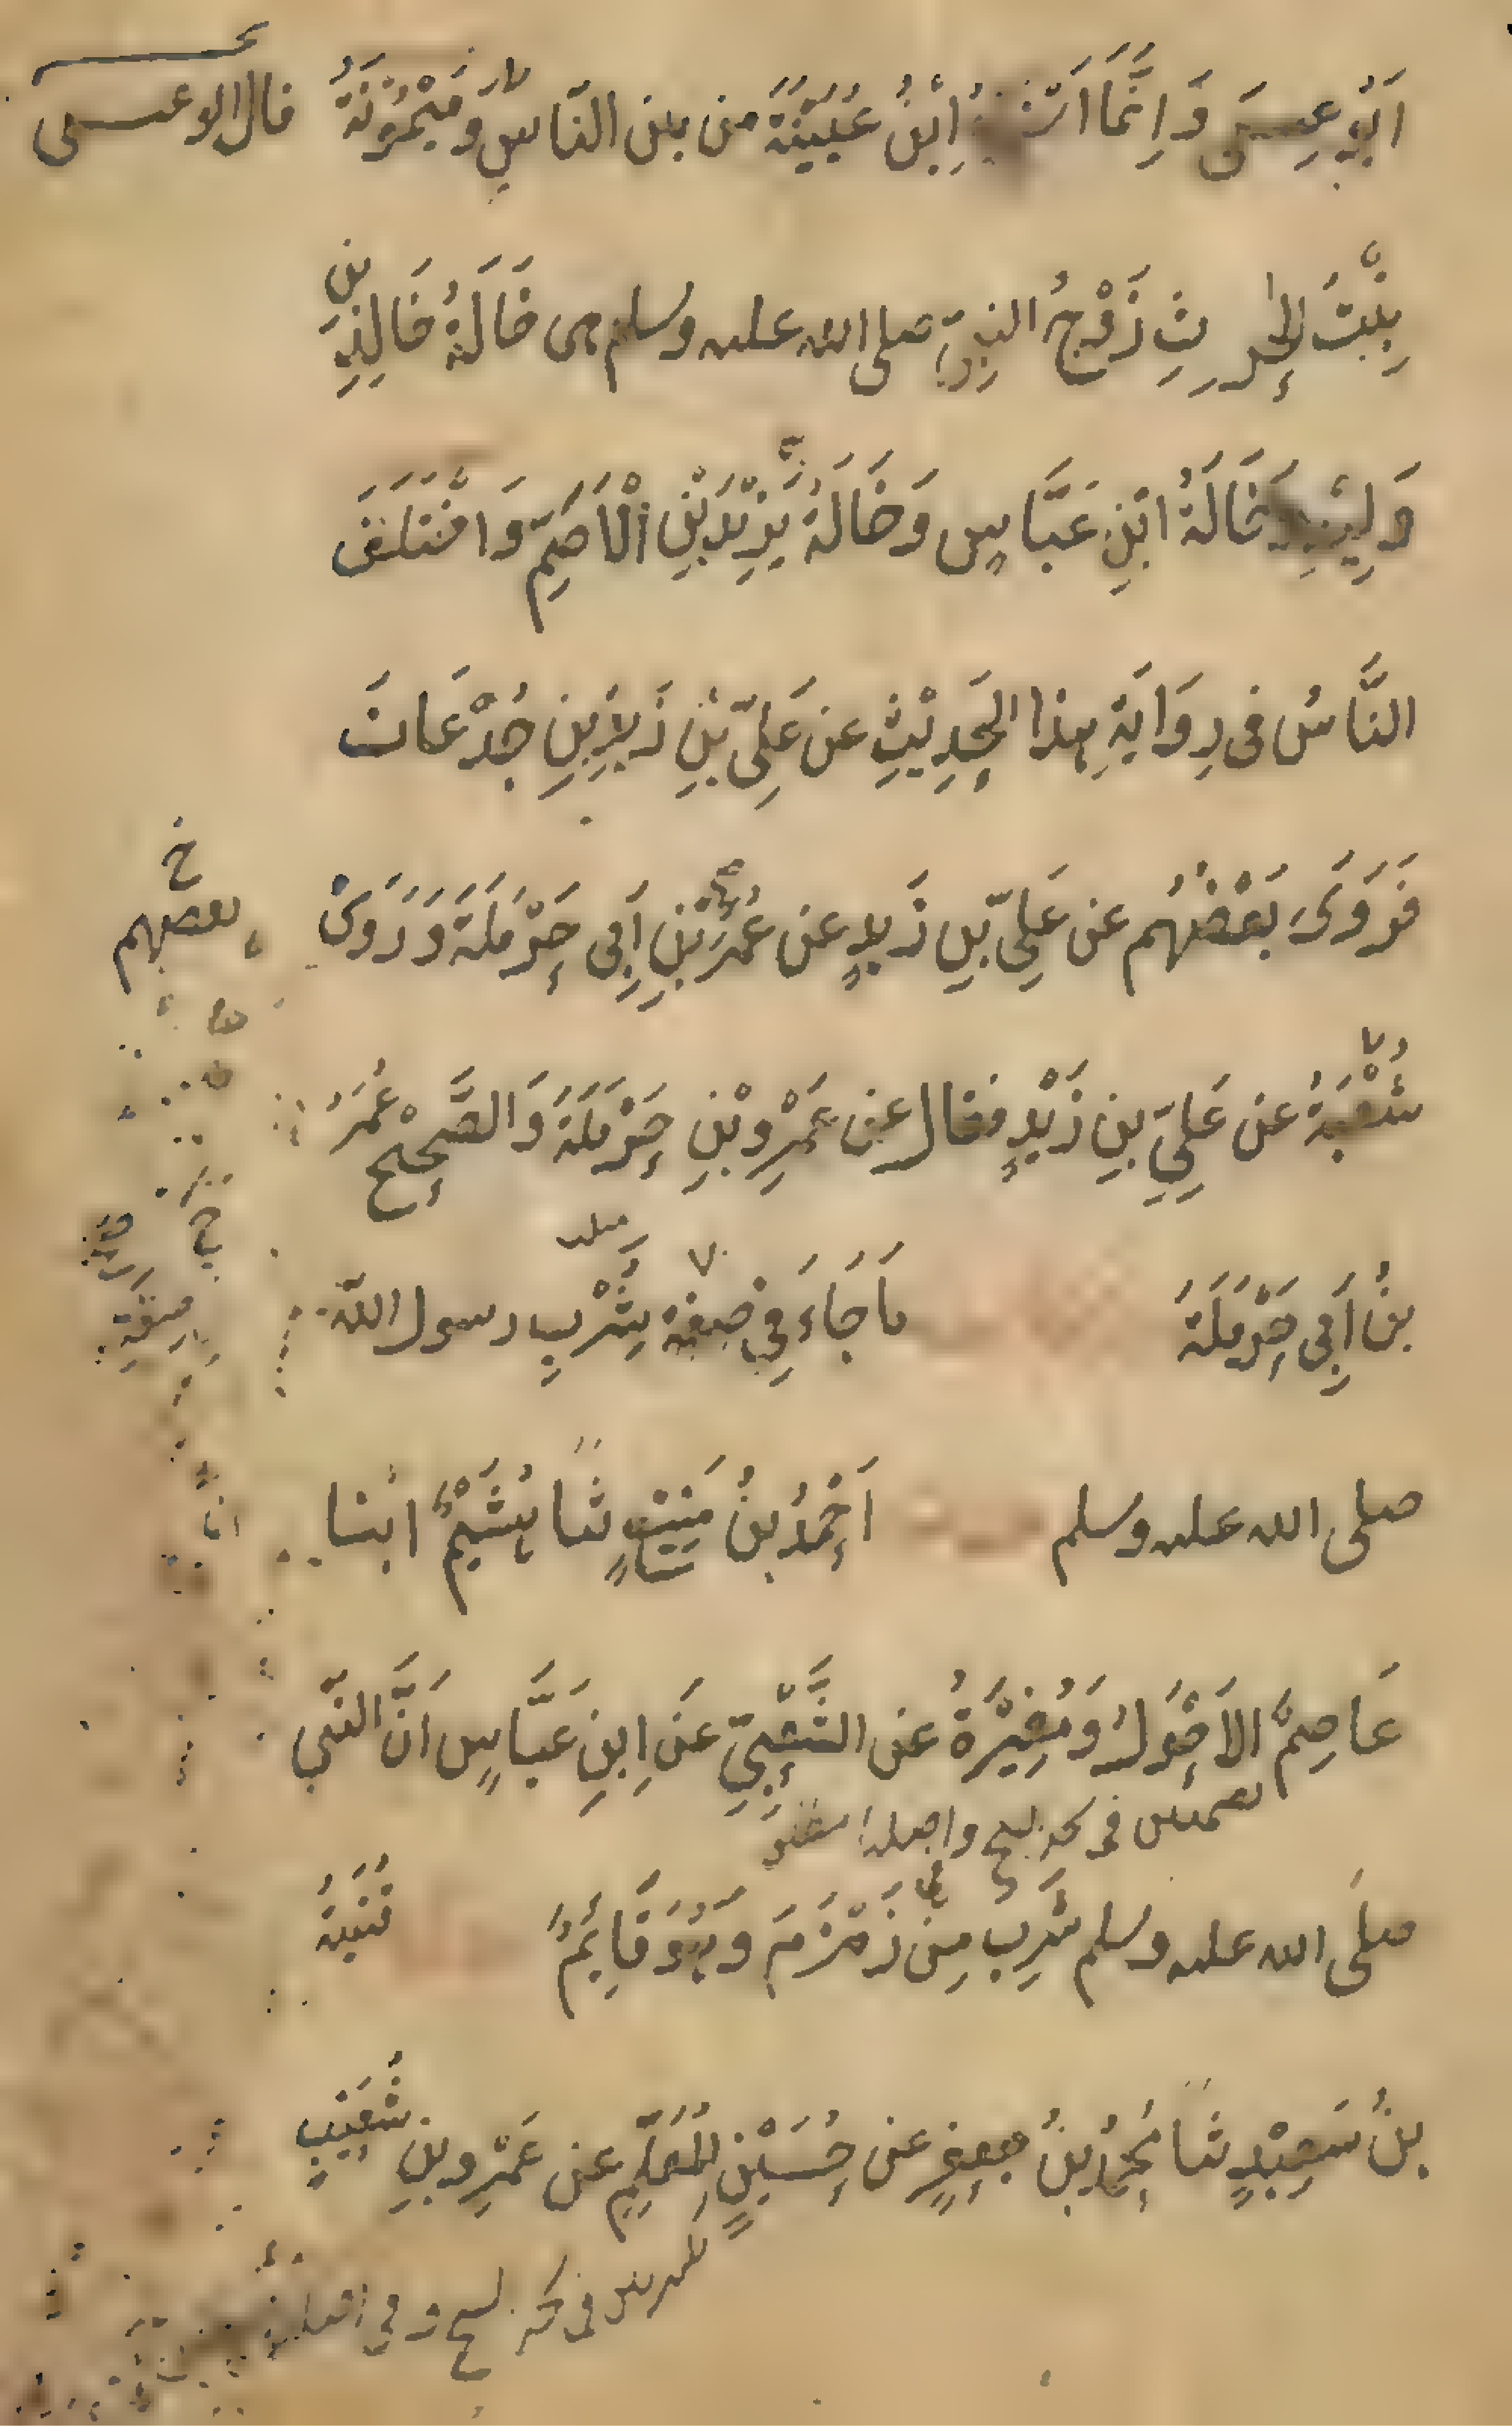 اَبُو عِيسَى وَاِنَّمَا اَسْنَدَهُ اِبْنُ عُيَيْنَةَ من بين النَّاسِ وَمَيْمُوْنَةُ قال ابو عيسى
بِنْتُ الحٰرِثِ زَوْجُ النبِيِّ صلى الله عليه وسلم هى خَالَةُ خَالِدِ بنِ
وَلِيْدِ وَخَالَةُ ابْنِ عَبَّاسٍ وَخَالَةُ يَزِيْدَ بْنِ الْاَصَمِّ وَاخْتَلَفَ
النَّاسُ فى رِوَايَةِ هذا الحَدِيْثِ عن عَلِىِّ بْنِ زَيْدِ بنِ جُدْعَانَ
فَرَوَى بَعْضُهُم عن عَلِىِّ بنِ زَيدٍ عن عُمَرَ بْنِ اَبِى حَرْمَلَةَ وَرَوَى
خ
بعضهم
شُعْبَةُ عن عَلِيِّ بنِ زَيْدٍ فقال عن عَمْرِو بْنِ حَرْمَلَةَ وَالصَّحِيْحُ عُمَرُ
بنُ اَبِى حَرْمَلَةَ مَا جَاءَ فِي صفة شُرْبِ رسول الله
صفَةِ
صلى الله عليه وسلم اَحْمَدُ بنُ مَنِيْعٍ ثَنَا هُشَيْمٌ ابنا
انا
عَاصِمٌ الاَحْوَلُ وَمُغِيْرَةُ عن الشَّعْبِيِّ عَنِ ابنِ عَبَّاسٍ اَنَّ النَّبي
صلَى الله عليه وسلم شَرِبَ مِنْ زَمْزَمَ وَهُوَ قَايِمٌ قُتَيْبَةُ
بنُ سَعِيْدٍ ثَنَا مُحَمَّدُ بنُ جعفرٍ عن حُسَيْنٍ المُعَلِّمِ عن عَمْرِو بنِ شُعَيْبٍ